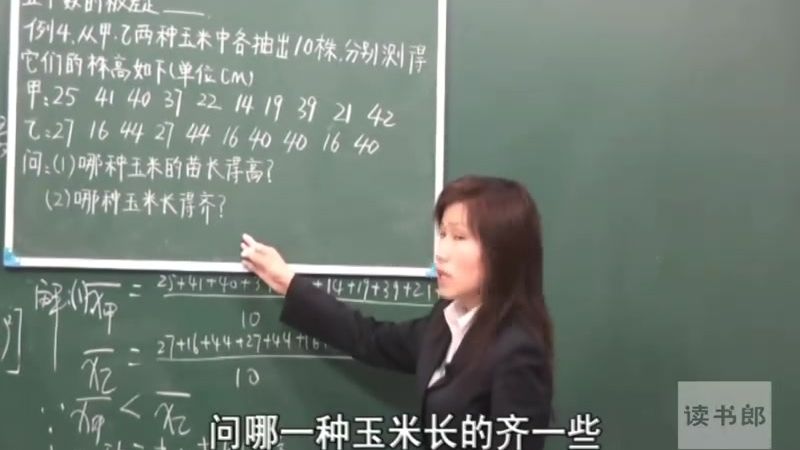 五个数的极差是___.
例4.从甲.乙两种玉米中各抽出10株.分别测得
它们的株高如下(单位CM)
甲:25 41 40 37 22 14 19 39 21 42
乙:27 16 44 27 44 16 40 40 16 40
问:(1)哪种玉米的苗长得高?
(2)哪种玉米长得齐?
解:(1)x̄甲 = 25+41+40+3 +14+19+39+21
10
x̄乙 = 27+16+44+27+44+16
10
∵ x̄甲 < x̄乙
问哪一种玉米长的齐一些
读书郎